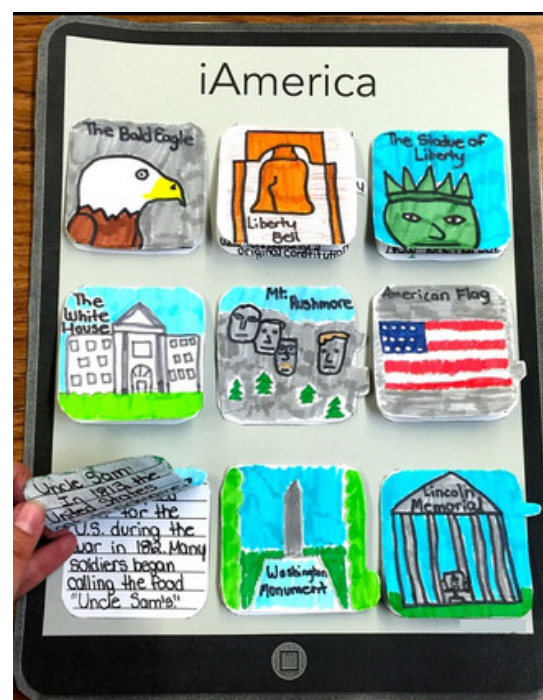 iAmerica
The Bald Eagle
Liberty
Bell
original constitution
The Stadue of
Liberty
The
White
House
Mt. Rushmore
American Flag
Uncle Sam
In 1813, the
United States
for the
U.S. during the
war in 1812. Many
soldiers began
calling the food
"Uncle Sam's."
Washington
Monument
Lincoln
Memorial